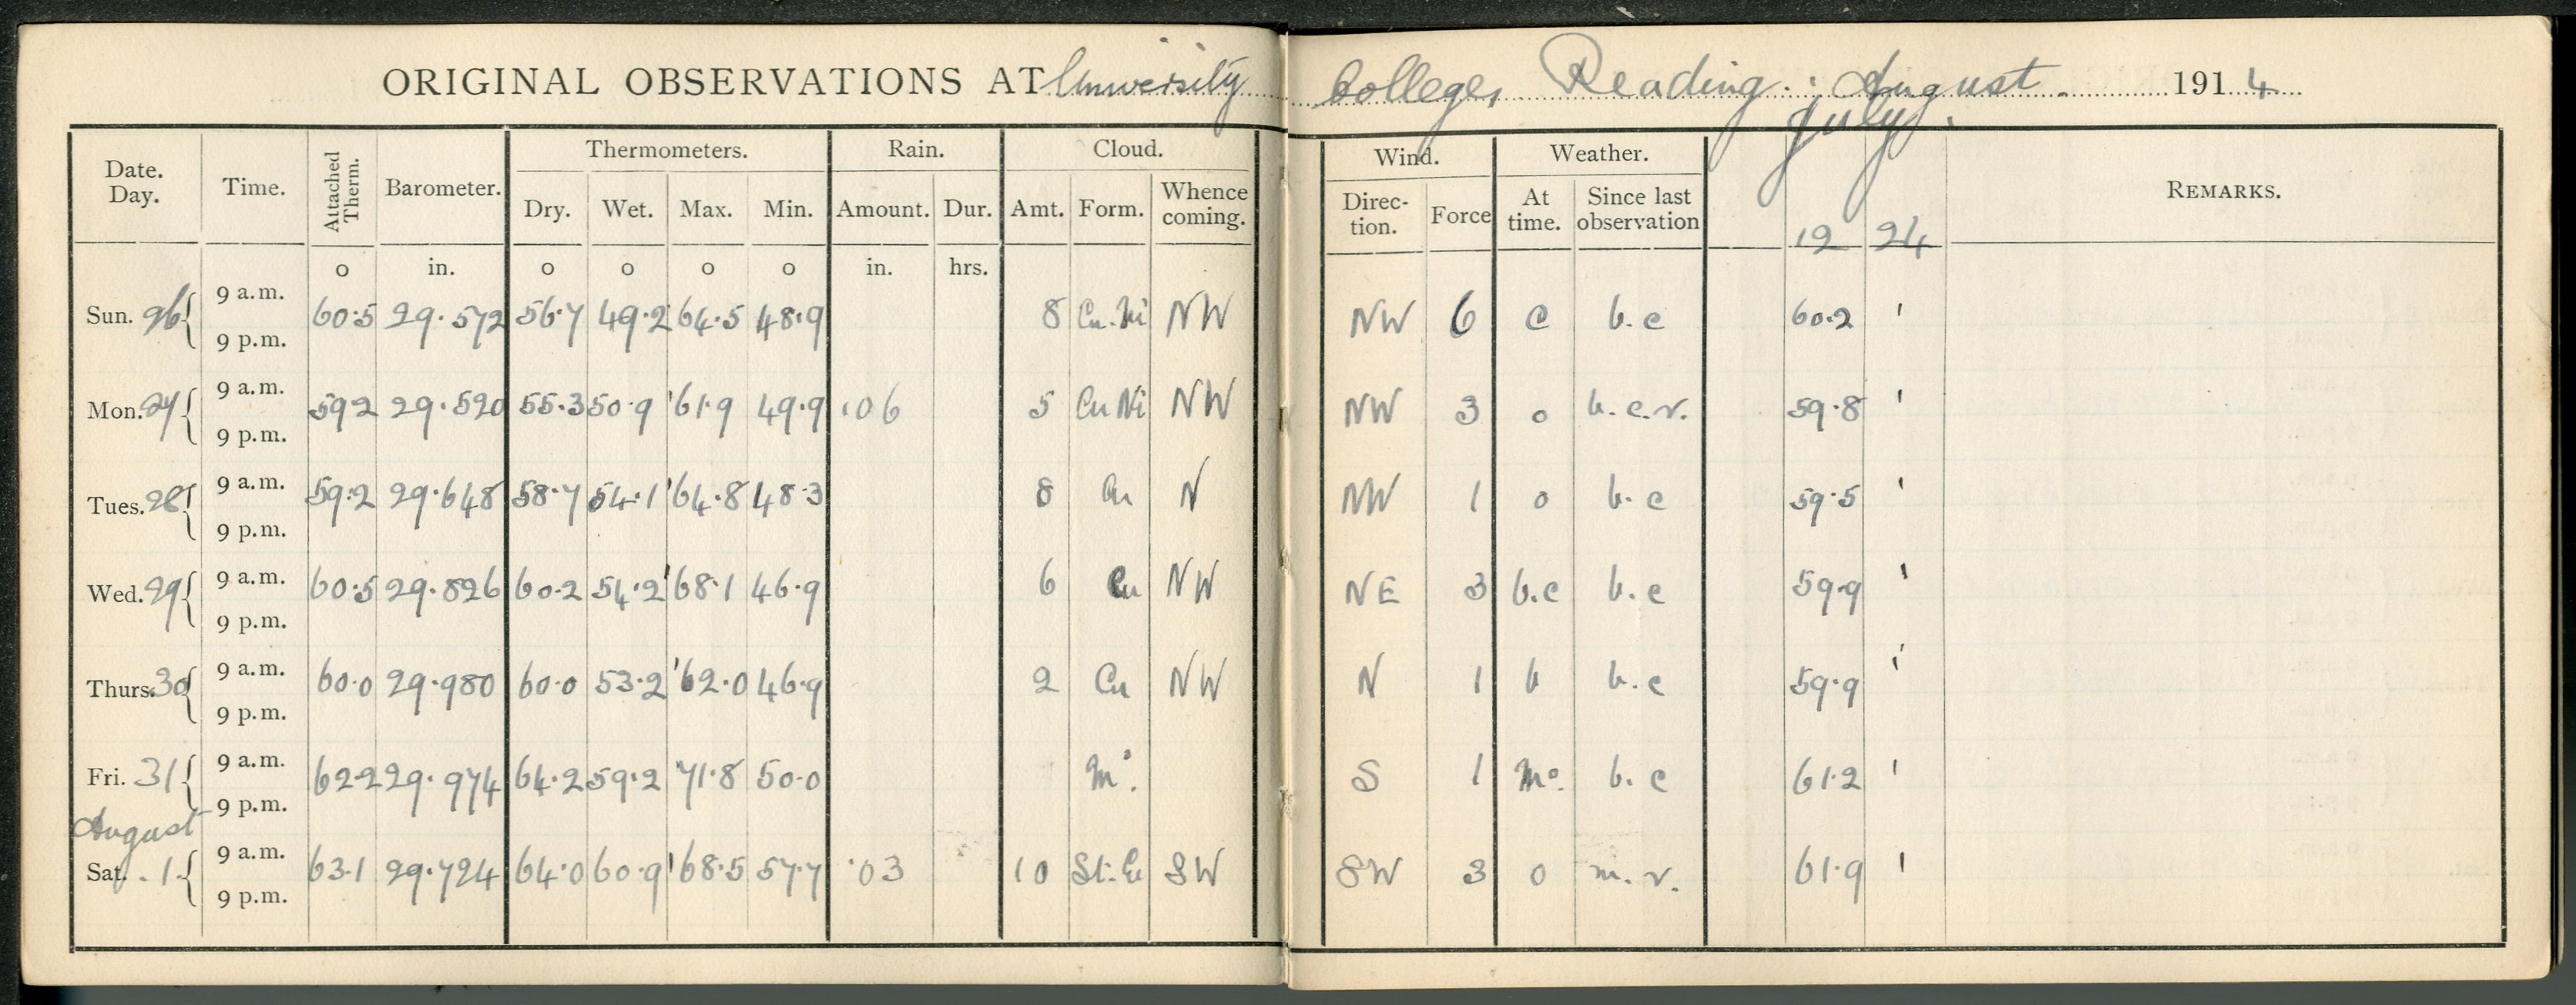 ORIGINAL OBSERVATIONS AT University College, Reading : August. 1914
July.
Date. Day. Time. Attached Therm. Barometer. Thermometers. Rain. Cloud. Wind. Weather. REMARKS.
Dry. Wet. Max. Min. Amount. Dur. Amt. Form. Whence coming. Direc- tion. Force At time. Since last observation 12 24
o in. o o o o in. hrs.
Sun. 26 { 9 a.m. 60.5 29.572 56.7 49.2 64.5 48.9 8 Cu.Ni NW NW 6 c b.c 60.2 '
9 p.m.
Mon. 27 { 9 a.m. 59.2 29.520 55.3 50.9 '61.9 49.9 .06 5 Cu Ni NW NW 3 o b.c.r. 59.8 '
9 p.m.
Tues. 28 { 9 a.m. 59.2 29.648 58.7 54.1 '64.8 48.3 8 Cu N NW 1 o b.c 59.5 '
9 p.m.
Wed. 29 { 9 a.m. 60.5 29.826 60.2 54.2 '68.1 46.9 6 Cu NW NE 3 b.c b.c 59.9 '
9 p.m.
Thurs. 30 { 9 a.m. 60.0 29.980 60.0 53.2 '62.0 46.9 2 Cu NW N 1 b b.c 59.9 '
9 p.m.
Fri. 31 { 9 a.m. 62.2 29.974 64.2 59.2 '71.8 50.0 m°. S 1 m°. b.c 61.2 '
9 p.m.
August
Sat. 1. { 9 a.m. 63.1 29.724 64.0 60.9 '68.5 57.7 .03 10 St. SW SW 3 o m.r. 61.9 '
9 p.m.